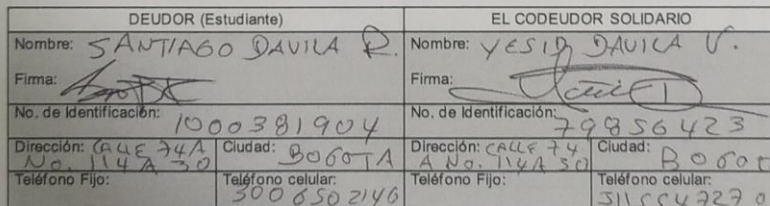 DEUDOR (Estudiante) EL CODEUDOR SOLIDARIO
Nombre: SANTIAGO DAVILA R. Nombre: YESID DAVILA V.
Firma: Firma:
No. de Identificación: 1000381904 No. de Identificación: 79856423
Dirección: CALLE 74A No. 114 A 30 Ciudad: BOGOTA Dirección: CALLE 74 A No. 114A 30 Ciudad: BOGOT
Teléfono Fijo: Teléfono celular: 3006502146 Teléfono Fijo: Teléfono celular: